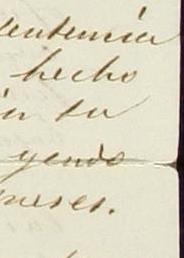 sentencia
hecho
in su
yendo
meses.